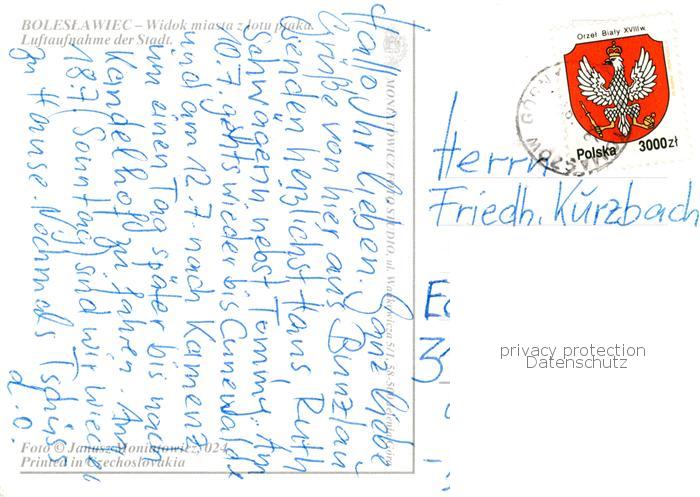 BOLESŁAWIEC – Widok miasta z lotu ptaka.
Luftaufnahme der Stadt.
Hallo Ihr Lieben. Ganz liebe
Grüße von hier aus Bunzlau
senden herzlichst Hans Ruth
Schwägerin nebst Tommy. Am
10.7. gehts wieder bis Cunewalde
und am 12.7. nach Kamenz
um einen Tag später bis nach
Kandelhof zu fahren. Am
18.7. Sonntag sind wir wieder
zu Hause. Nochmals Tschüss
d.O.
Foto © Janusz Moniatowicz, 024
Printed in Czechoslovakia
Orzeł Biały XVIII w.
Polska 3000zł
Herrn
Friedh. Kürzbach
3
privacy protection
Datenschutz